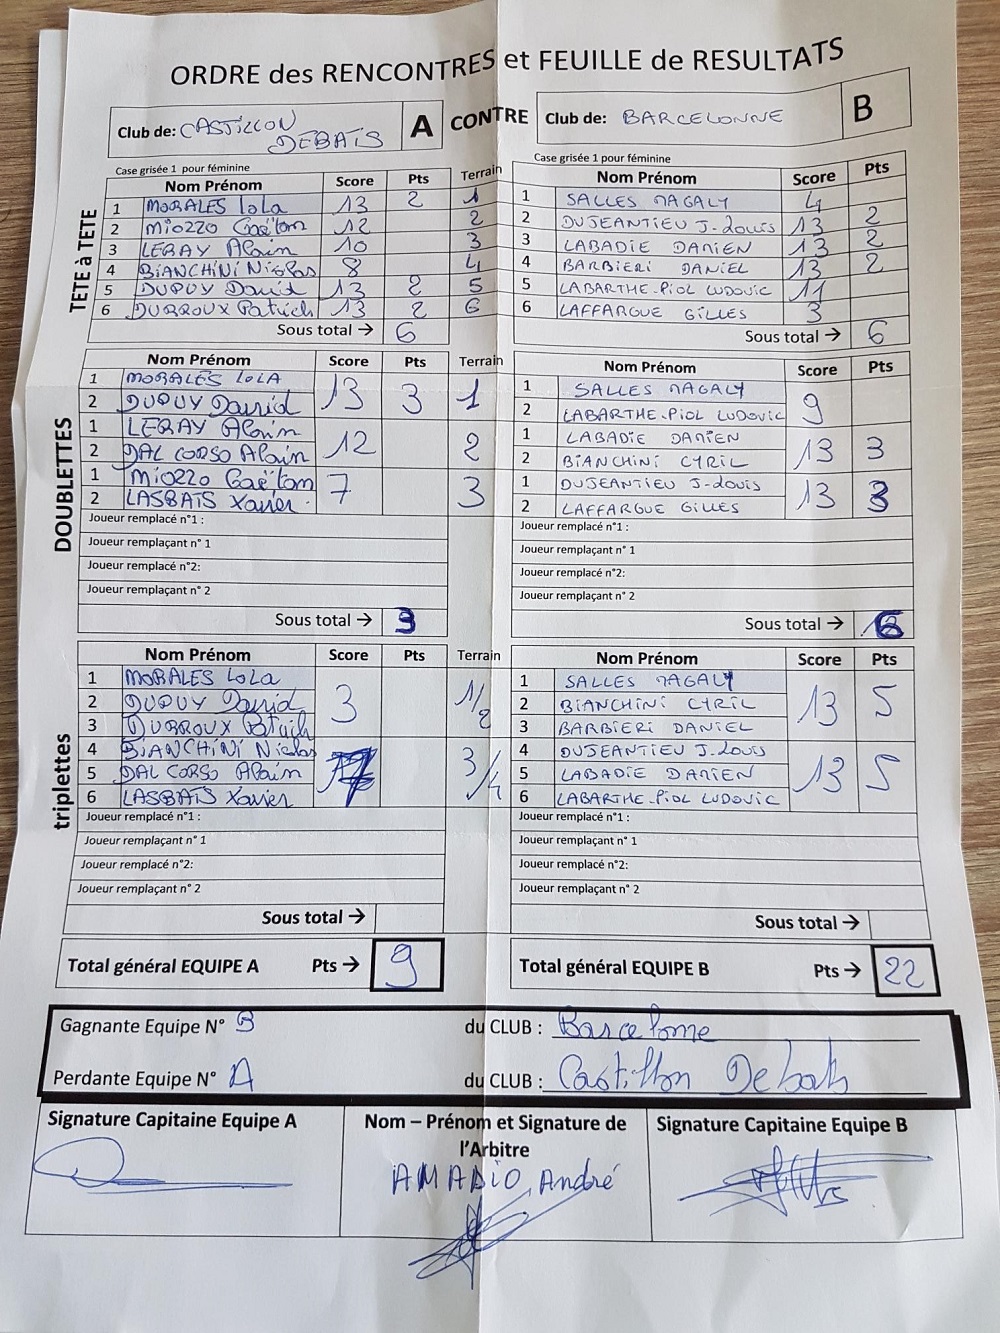 ORDRE des RENCONTRES et FEUILLE de RESULTATS
Club de: CASTILLON DEBATS A CONTRE Club de: BARCELONNE B
Case grisée 1 pour féminine
Nom Prénom Score Pts Terrain
TETE à TETE
1 MORALES Lola 13 2 1
2 MIOZZO Gaëtan 12 2
3 LERAY Alain 10 3
4 BIANCHINI Nicolas 8 4
5 DUPUY David 13 2 5
6 DURROUX Patrick 13 2 6
Sous total → 6
Case grisée 1 pour féminine
Nom Prénom Score Pts
1 SALLES MAGALY 4
2 DUJEANTIEU J-Louis 13 2
3 LABADIE DAMIEN 13 2
4 BARBIERI DANIEL 13 2
5 LABARTHE-PIOL LUDOVIC 11
6 LAFFARGUE GILLES 3
Sous total → 6
DOUBLETTES
Nom Prénom Score Pts Terrain
1 MORALES LOLA 13 3 1
2 DUPUY David
1 LERAY Alain 12 2
2 DAL CORSO Alain
1 MIOZZO Gaëtan 7 3
2 LASBATS Xavier
Joueur remplacé n°1 :
Joueur remplaçant n° 1
Joueur remplacé n°2:
Joueur remplaçant n° 2
Sous total → 3
Nom Prénom Score Pts
1 SALLES MAGALY 9
2 LABARTHE-PIOL LUDOVIC
1 LABADIE DAMIEN 13 3
2 BIANCHINI CYRIL
1 DUJEANTIEU J-Louis 13 3
2 LAFFARGUE GILLES
Joueur remplacé n°1 :
Joueur remplaçant n° 1
Joueur remplacé n°2:
Joueur remplaçant n° 2
Sous total → 6
triplettes
Nom Prénom Score Pts Terrain
1 MORALES LOLA 3 1/2
2 DUPUY David
3 DURROUX Patrick
4 BIANCHINI Nicolas 3/4
5 DAL CORSO Alain
6 LASBATS Xavier
Joueur remplacé n°1 :
Joueur remplaçant n° 1
Joueur remplacé n°2:
Joueur remplaçant n° 2
Sous total →
Nom Prénom Score Pts
1 SALLES MAGALY 13 5
2 BIANCHINI CYRIL
3 BARBIERI DANIEL
4 DUJEANTIEU J.Louis 13 5
5 LABADIE DAMIEN
6 LABARTHE-PIOL LUDOVIC
Joueur remplacé n°1 :
Joueur remplaçant n° 1
Joueur remplacé n°2:
Joueur remplaçant n° 2
Sous total →
Total général EQUIPE A Pts → 9
Total général EQUIPE B Pts → 22
Gagnante Equipe N° B du CLUB : Barcelonne
Perdante Equipe N° A du CLUB : Castillon Debats
Signature Capitaine Equipe A
Nom – Prénom et Signature de l'Arbitre
AMADIO André
Signature Capitaine Equipe B